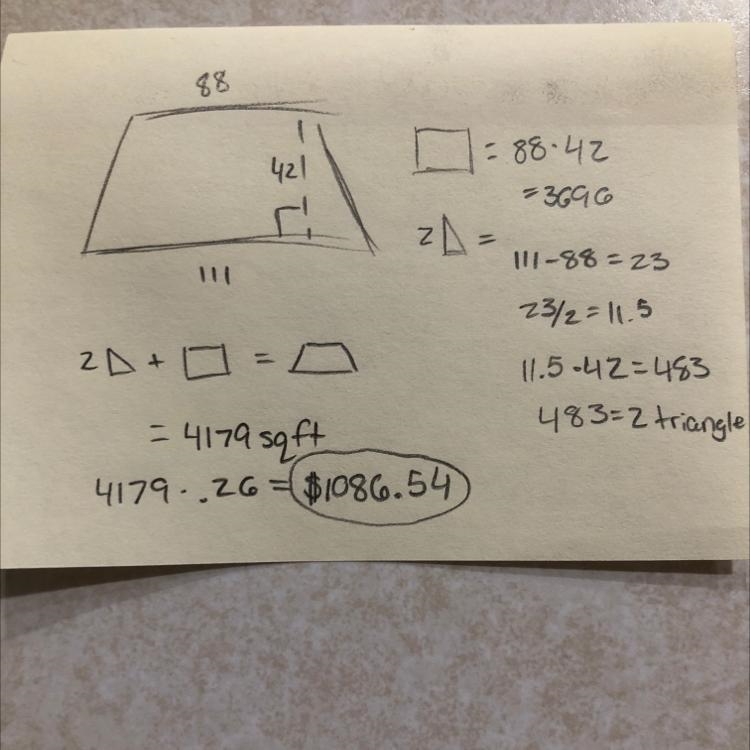 88
42
111
= 88·42
= 3696
2 =
111-88 = 23
23/2 = 11.5
11.5·42 = 483
483 = 2 triangle
2 + =
= 4179 sqft
4179 · .26 = $1086.54